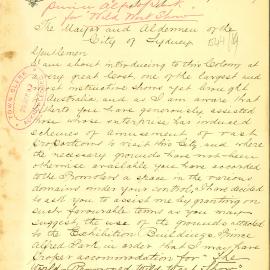 Prince Alfred Park
for Wild West Show
The Mayor and Aldermen of the
City of Sydney
Gentlemen
I am about introducing to this Colony at
a very great cost, one of the largest and
most instructive shows yet brought
to Australia and as I am aware that
you have generously assisted
those whose enterprise has induced
schemes of amusement of vast
proportions to visit this City and where
the necessary grounds have not been
otherwise available you have accorded
to the Promoters a space in the various
domains under your control, I have decided
to ask you to assist me by granting on
such favourable terms as you may
suggest, the use of the grounds attached
to the Exhibition Buildings Prince
Alfred Park in order that I may have
proper accommodation for "The
Wild West Show"
TOWN CLERK